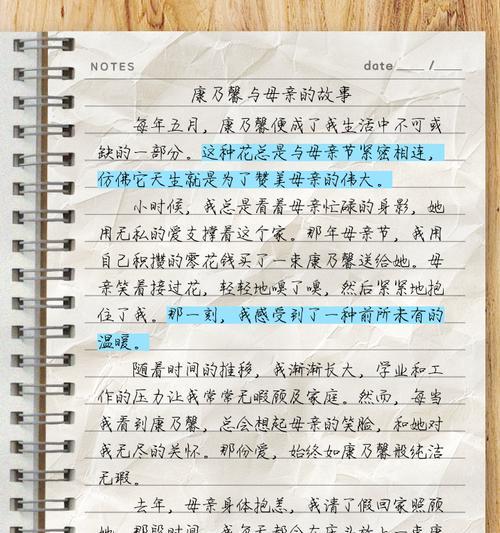 NOTES date /
康乃馨与母亲的故事
每年五月，康乃馨便成了我生活中不可或
缺的一部分。这种花总是与母亲节紧密相连，
仿佛它天生就是为了赞美母亲的伟大。
小时候，我总是看着母亲忙碌的身影，她
用无私的爱支撑着这个家。那年母亲节，我用
自己积攒的零花钱买了一束康乃馨送给她。母
亲笑着接过花，轻轻地嗅了嗅，然后紧紧地抱
住了我。那一刻，我感受到了一种前所未有的
温暖。
随着时间的推移，我渐渐长大，学业和工
作的压力让我常常无暇顾及家庭。然而，每当
我看到康乃馨，总会想起母亲的笑脸，和她对
我无尽的关怀。那份爱，始终如康乃馨般纯洁
无瑕。
去年，母亲身体抱恙，我请了假回家照顾
她。那段时间，我每天都会在床头放上一束康